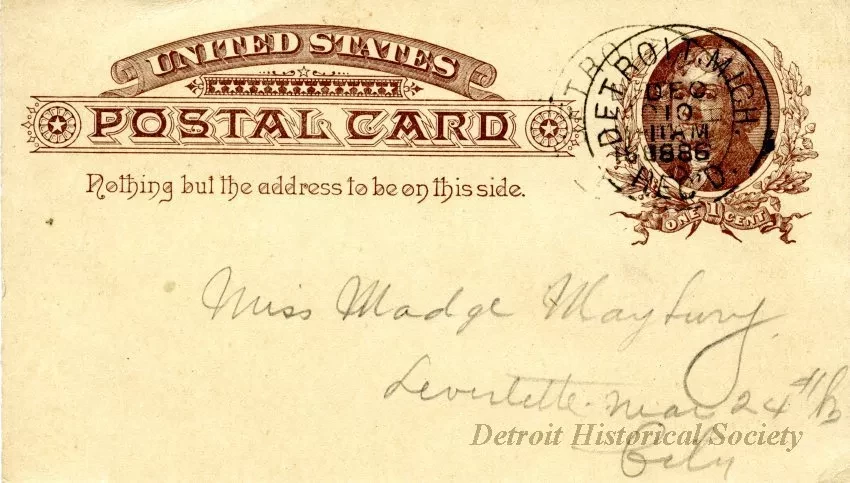 UNITED STATES
POSTAL CARD
Nothing but the address to be on this side.
DETROIT, MICH.
DEC
10
11 AM
1886
REC'D.
ONE 1 CENT
Miss Madge Maybury
Leverette near 24th
City
Detroit Historical Society